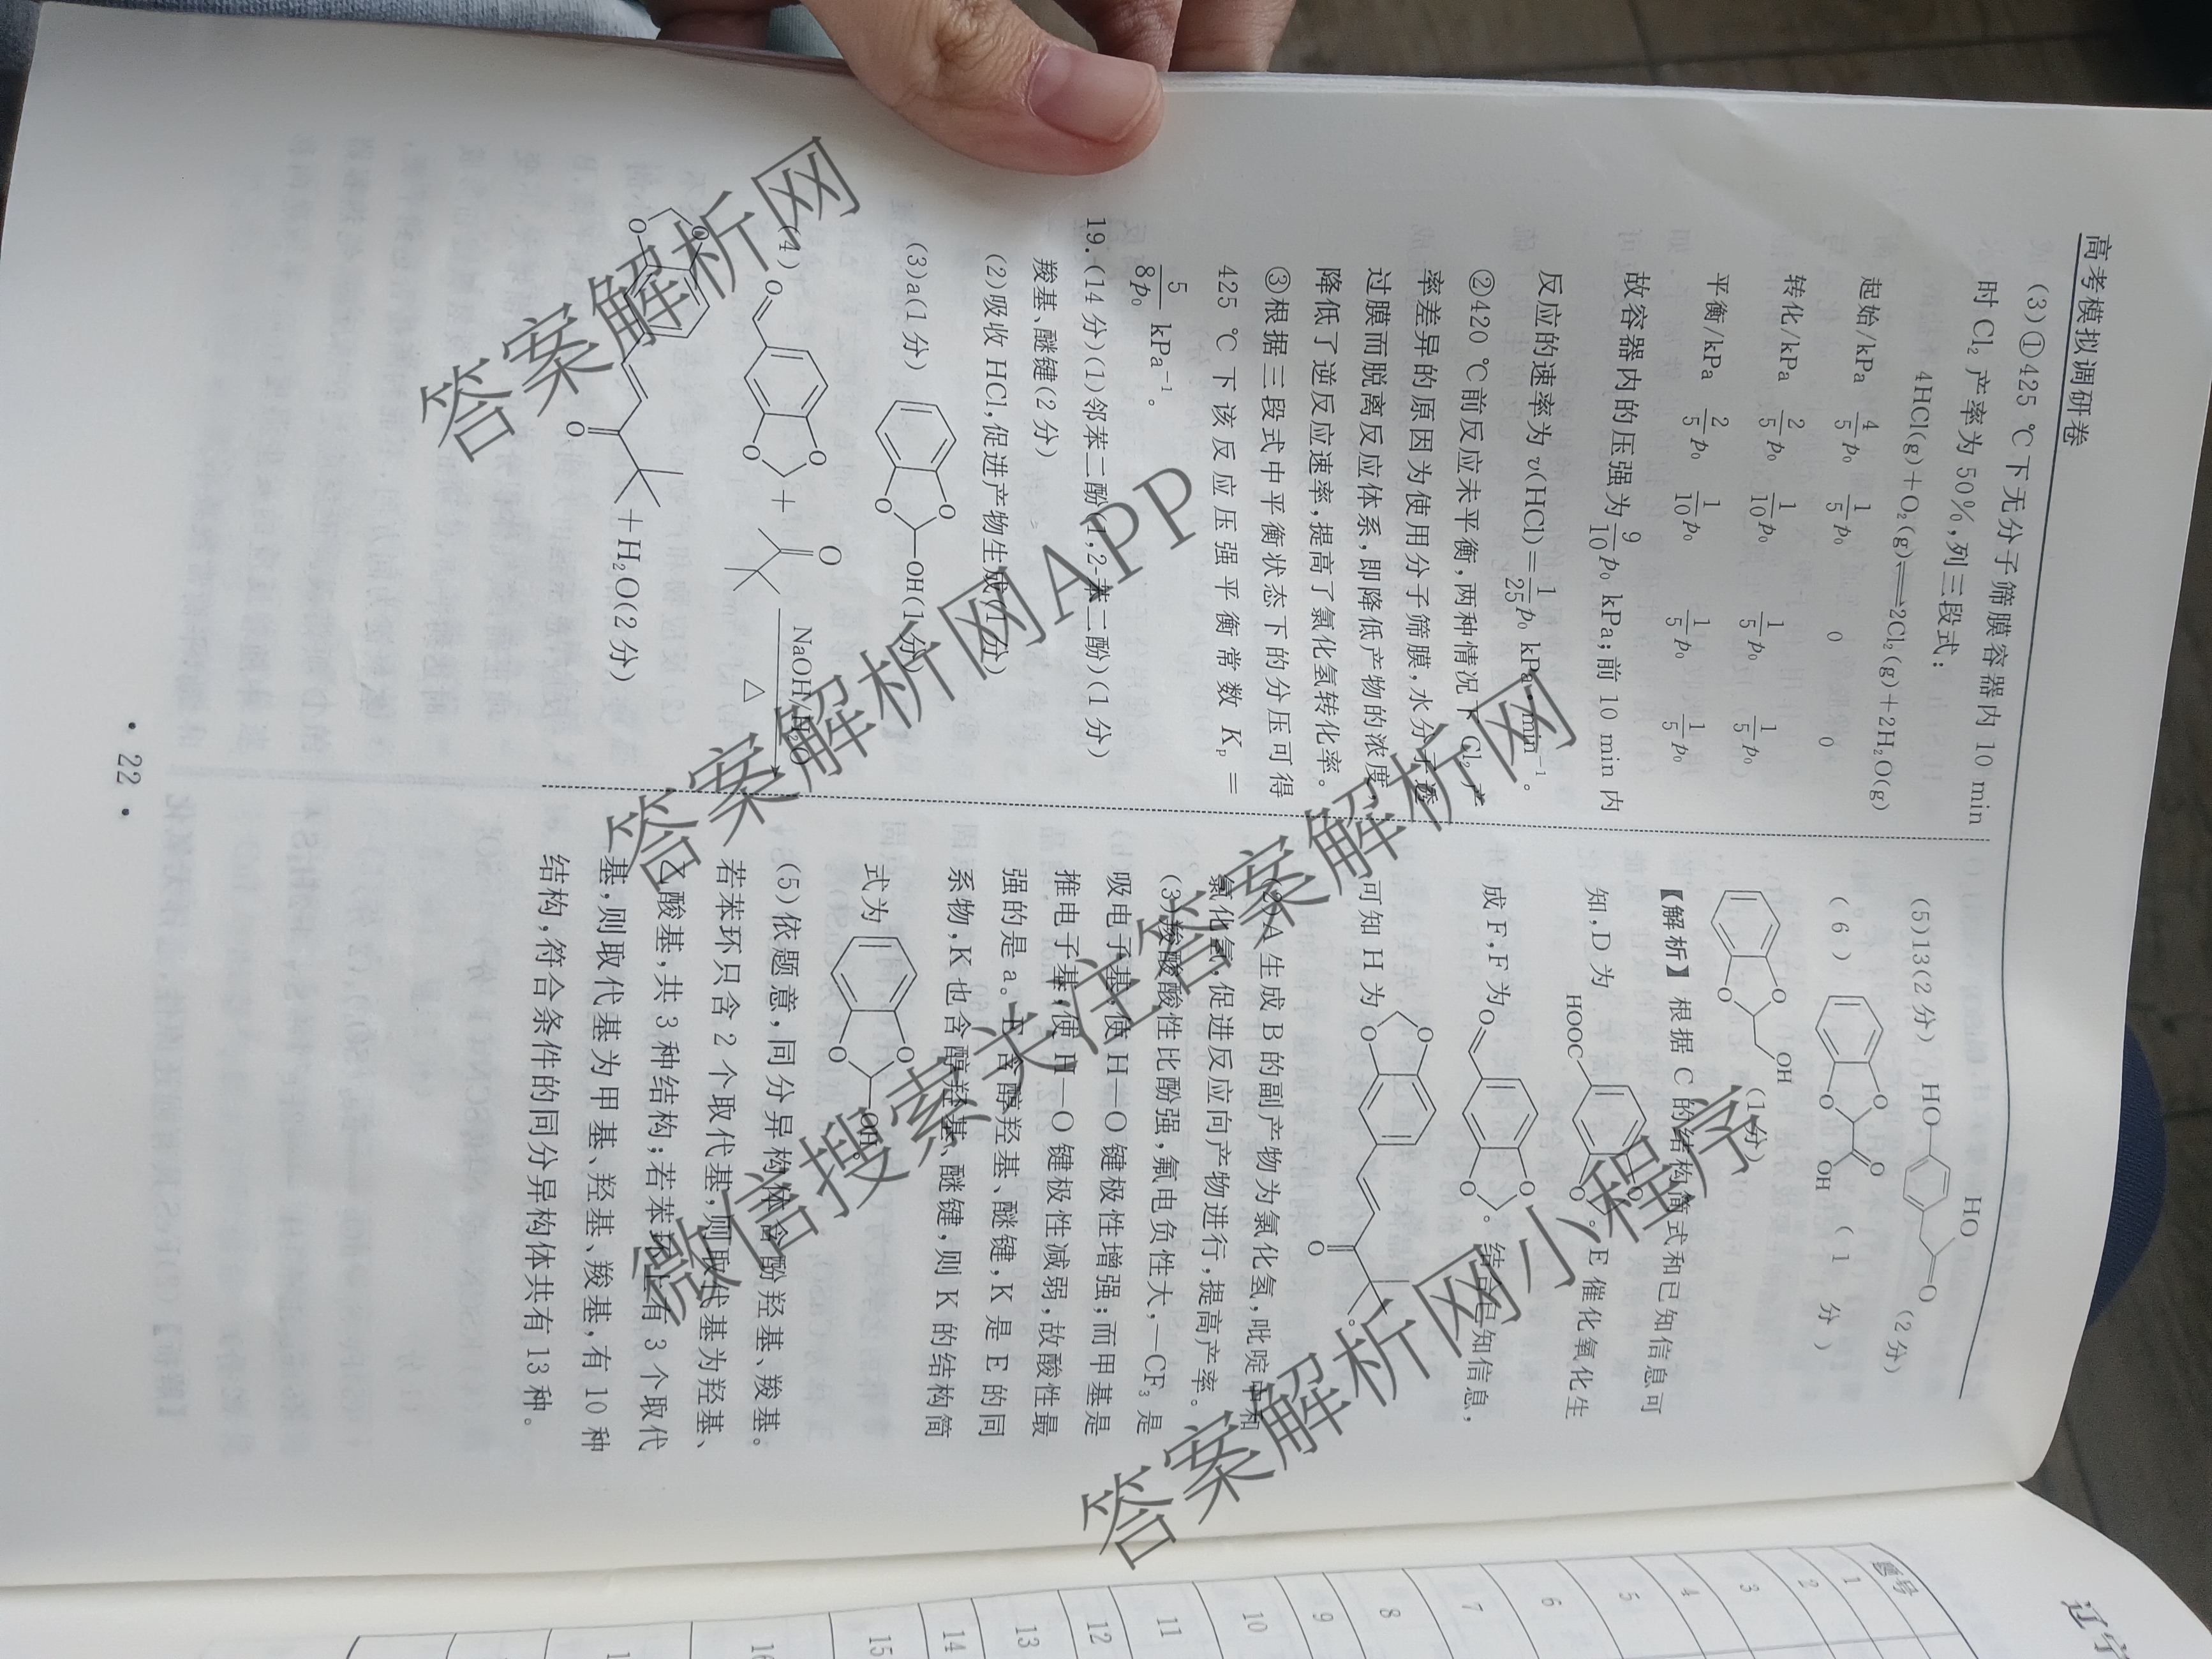 高考模拟调研卷
(3)①425 ℃下无分子筛膜容器内 10 min
时 Cl₂ 产率为 50%,列三段式:
4HCl(g)+O₂(g)⇌2Cl₂(g)+2H₂O(g)
起始/kPa 4/5 p₀ 1/5 p₀ 0 0
转化/kPa 2/5 p₀ 1/10 p₀ 1/5 p₀ 1/5 p₀
平衡/kPa 2/5 p₀ 1/10 p₀ 1/5 p₀ 1/5 p₀
故容器内的压强为 9/10 p₀ kPa;前 10 min 内
反应的速率为 v(HCl)=1/25 p₀ kPa·min⁻¹。
②420 ℃前反应未平衡,两种情况下 Cl₂ 产
率差异的原因为使用分子筛膜,水分子透
过膜而脱离反应体系,即降低产物的浓度,
降低了逆反应速率,提高了氯化氢转化率。
③根据三段式中平衡状态下的分压可得
425 ℃ 下该反应压强平衡常数 Kₚ =
5/8p₀ kPa⁻¹。
19.(14 分)(1)邻苯二酚(1,2-苯二酚)(1 分)
羧基、醚键(2 分)
(2)吸收 HCl,促进产物生成(1 分)
(3)a(1 分) O O OH(1 分)
(4) O O O + O NaOH/H₂O △
O O O +H₂O(2 分)
(5)13(2 分) HO HO O (2 分)
(6) O O O OH (1 分)
O O OH (1 分)
【解析】根据 C 的结构简式和已知信息可
知,D 为 HOOC O O 。E 催化氧化生
成 F,F 为 O O O 。结合已知信息,
可知 H 为 O O O 。
(2)A 生成 B 的副产物为氯化氢,吡啶中和
氯化氢,促进反应向产物进行,提高产率。
(3)羧酸酸性比酚强,氟电负性大,—CF₃ 是
吸电子基,使 H—O 键极性增强;而甲基是
推电子基,使 H—O 键极性减弱,故酸性最
强的是 a。E 含醇羟基、醚键,K 是 E 的同
系物,K 也含醇羟基、醚键,则 K 的结构简
式为 O O OH。
(5)依题意,同分异构体含酚羟基、羧基。
若苯环只含 2 个取代基,则取代基为羟基、
乙酸基,共 3 种结构;若苯环上有 3 个取代
基,则取代基为甲基、羟基、羧基,有 10 种
结构,符合条件的同分异构体共有 13 种。
· 22 ·
辽宁
题号
1
2
3
4
5
6
7
8
9
10
11
12
13
14
15
16
答案解析网
答案解析网APP
答案解析网
微信搜索关注答案解析网小程序
答案解析网小程序